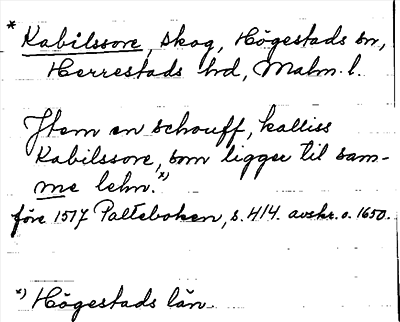 * Kabilssore, skog, Högestads sn,
Herrestads hd, Malm. l.
Jtem en schouff, kalliss
Kabilssore,ˣ⁾ som ligger til sam-
me lehn.
före 1517 Palteboken, s. 414. avskr. o. 1650.
ˣ⁾ Högestads län